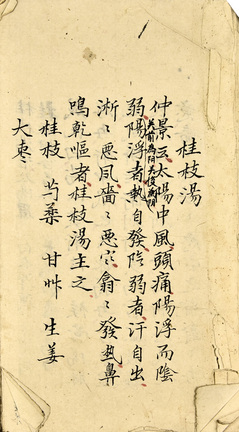 桂枝湯
仲景云太陽中風頭痛陽浮而陰
弱陽浮者熱自發陰弱者汗自出
淅〻惡風嗇〻惡寒翕〻發熱鼻
鳴乾嘔者桂枝湯主之
桂枝 芍藥 甘艸 生姜
大枣